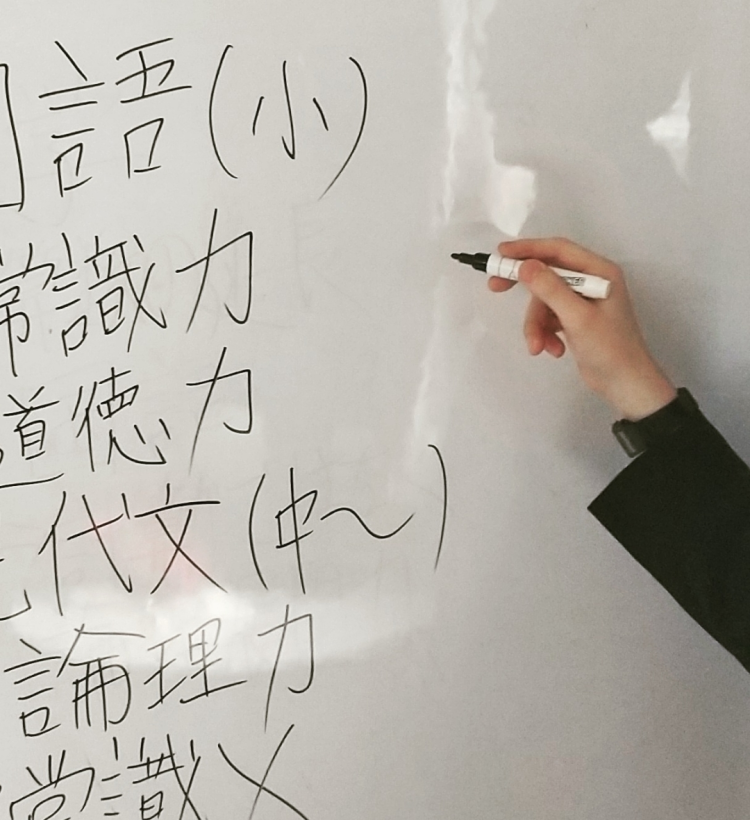 語(小)
常識力
道徳力
代文(中〜)
論理力
常識×